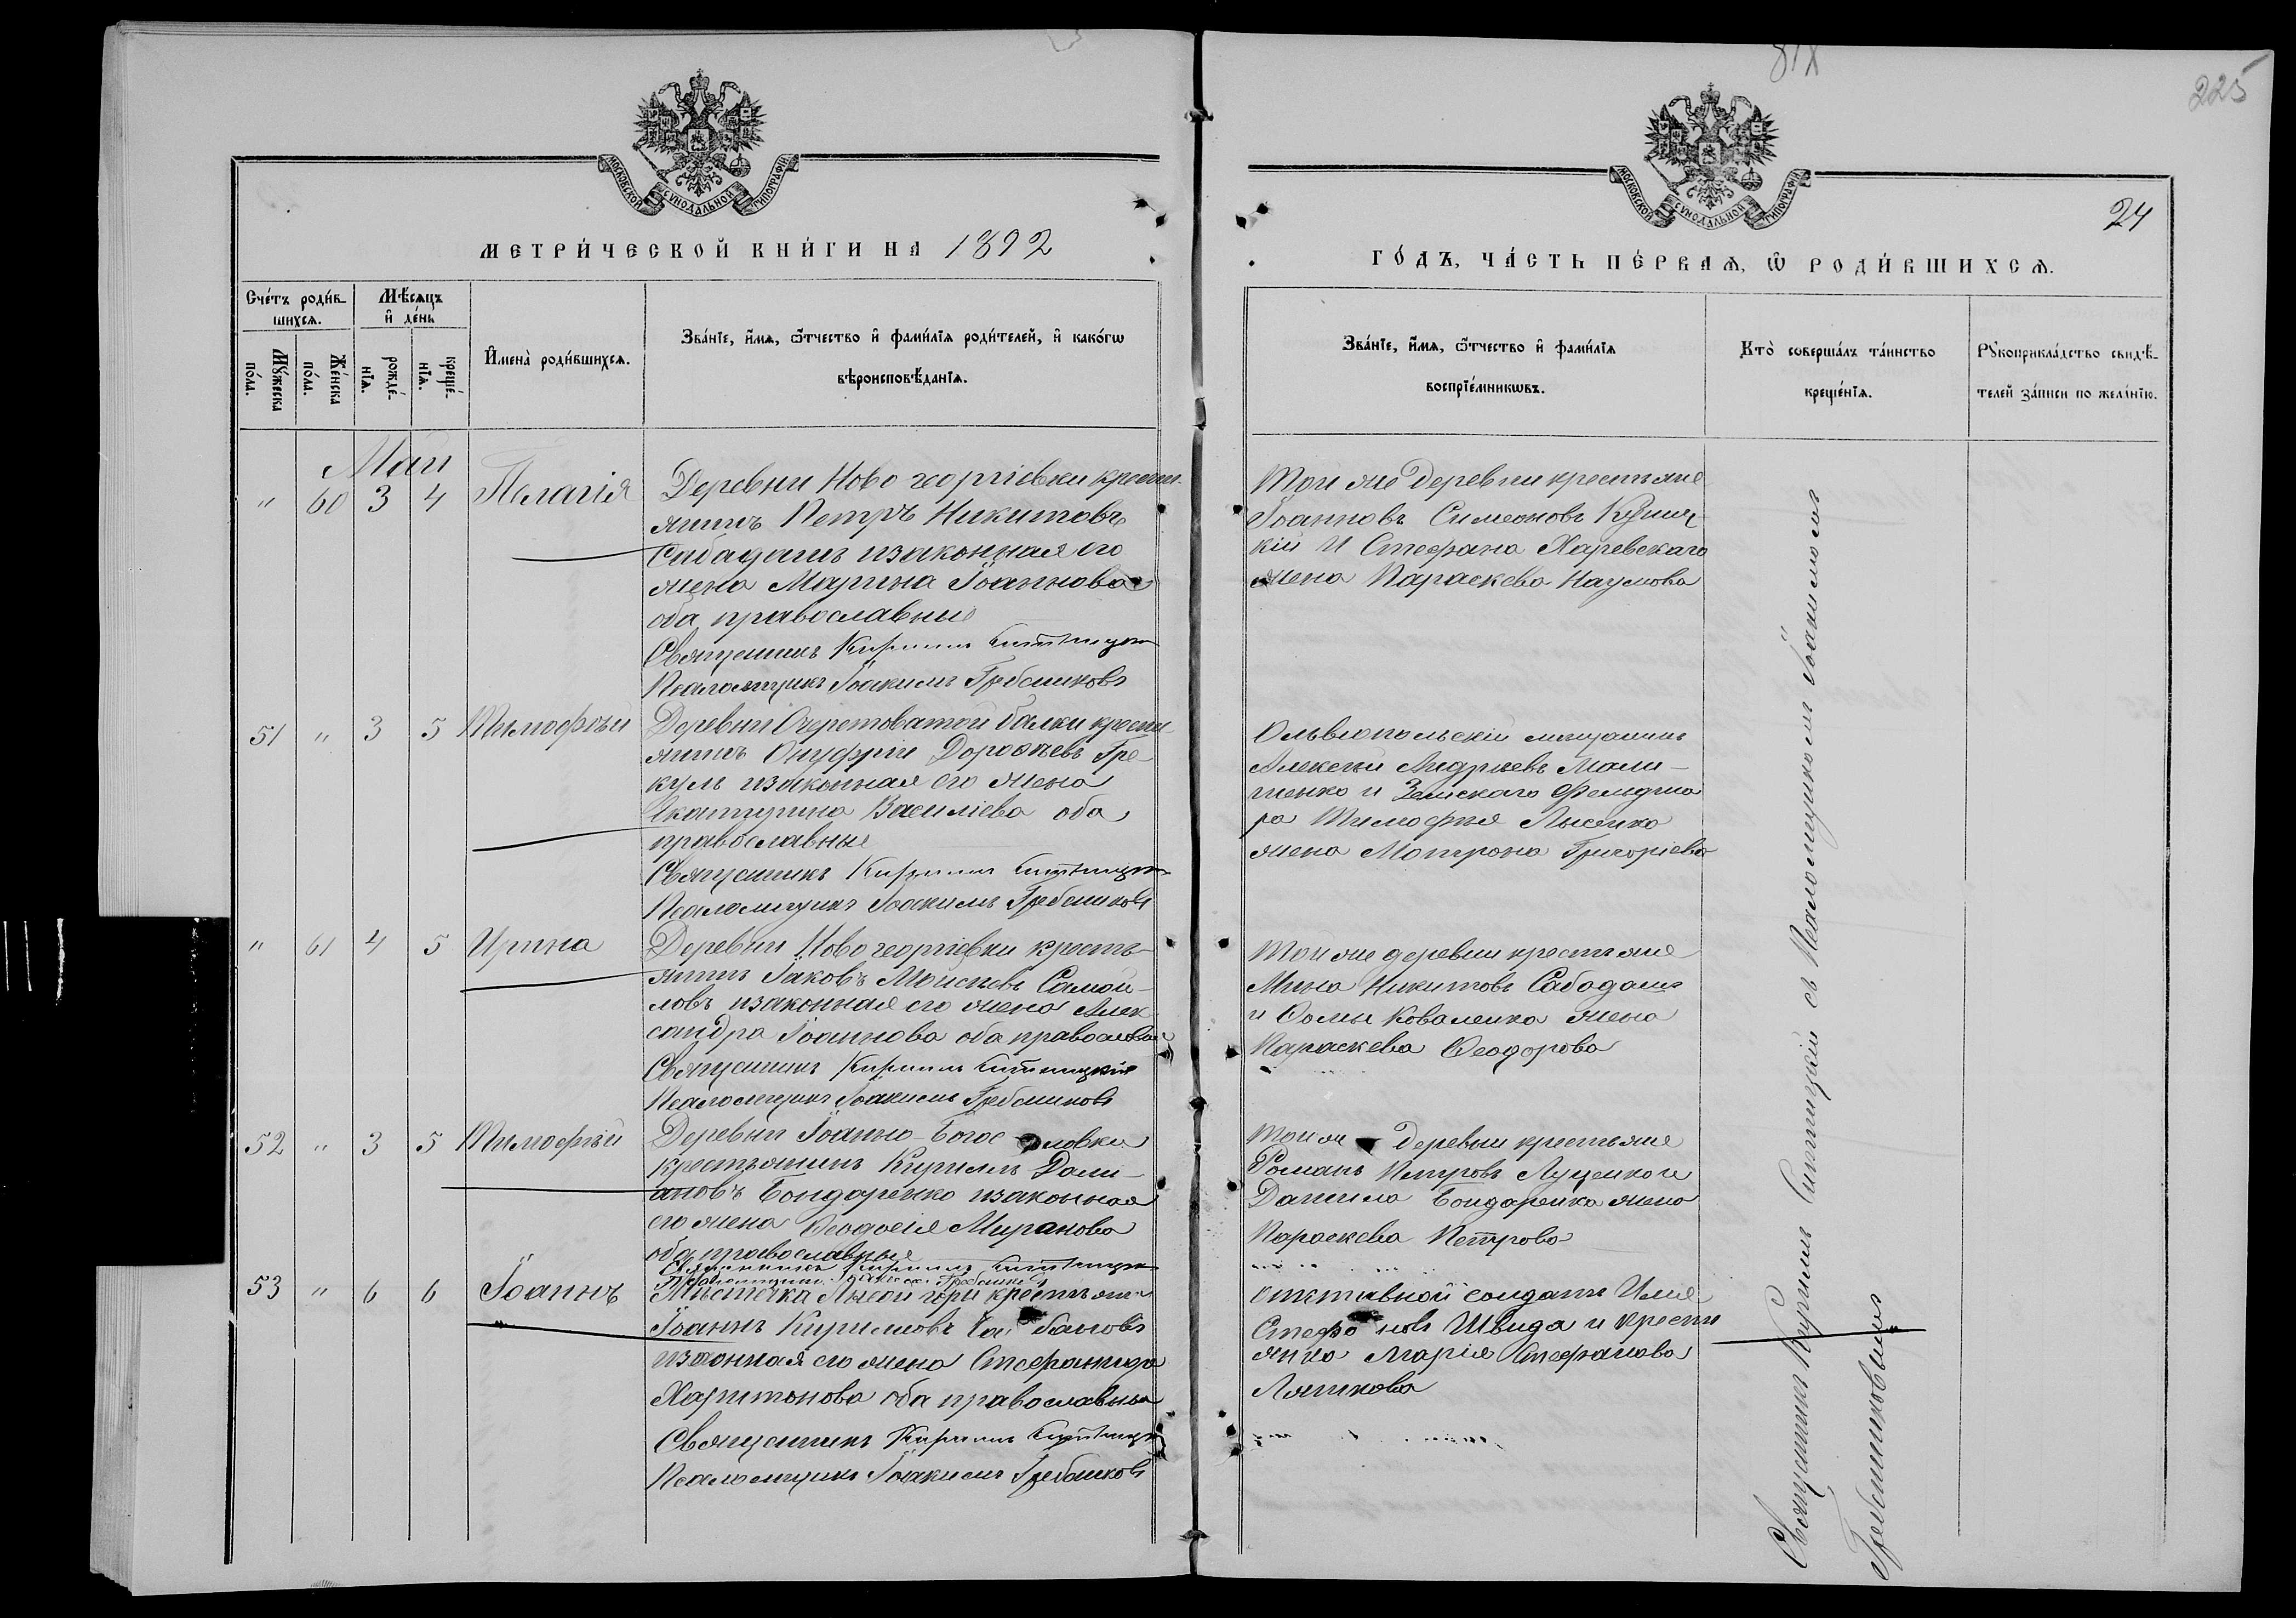 225
24
МОСКОВСКОЙ СѴНОДАЛЬНОЙ ТИПОГРАФІИ
МОСКОВСКОЙ СѴНОДАЛЬНОЙ ТИПОГРАФІИ
МЕТРИ́ЧЕСКОЙ КНИ́ГИ НА 1892
ГО́ДЪ, ЧА́СТЬ ПЕ́РВАѦ, Ѽ РОДИ́ВШИХСѦ.
Сче́тъ роди́в-
шихсѧ.
Мѣ́сѧцъ
и҆ де́нь
Мꙋ́жеска
по́ла.
Же́нска
по́ла.
рожде́-
нїѧ.
креще́-
нїѧ.
И҆мена̀ роди́вшихсѧ.
Зва́нїе, и҆́мѧ, ѻ҆́тчество и҆ фами́лїѧ роди́телей, и҆ како́гѡ
вѣроисповѣ́данїѧ.
Зва́нїе, и҆́мѧ, ѻ҆́тчество и҆ фами́лїѧ
воспрїе́мникѡвъ.
Кто̀ соверша́лъ та́инство
креще́нїѧ.
Рꙋкоприкла́дство свидѣ́-
телей за́писи по жела́нїю.
Май
" 60 3 4 Пелагія
Деревни Ново георгіевки крестъ-
янинъ Петръ Никитовъ
Сабадашъ изаконная его
жена Марина Іоаннова
оба православные
Священникъ Кириллъ
Псаломщикъ Іоакимъ Гребенниковъ
Той же деревни крестьяне
Іоанновъ Симеоновъ
кій и Стефана Харевскаго
жена Параскева Наумова
51 " 3 5 Тимофѣй
Деревни Очеретоватой балки крестъ-
янинъ Онуфрій Дорофѣевъ Гре-
куль изаконная его жена
Екатерина Василіева оба
православные
Священникъ Кириллъ
Псаломщикъ Іоакимъ Гребенниковъ
Ольвіопольскій мещанинъ
Алексѣй Андреевъ Мали-
ченко и Земскаго Фельдше
ра Тимофея Лысенко
жена Матрона Григоріева
" 61 4 5 Ирина
Деревни Ново георгіевки кресть-
янинъ Іаковъ Моисѣевъ Самой-
ловъ изаконная его жена Алек
сандра Іоаннова оба православные
Священникъ Кириллъ
Псаломщикъ Іоакимъ Гребенниковъ
Той же деревни крестьяне
Мина Никитовъ Сабадашъ
и Ѳомы Коваленка жена
Параскева Ѳеодорова
52 " 3 5 Тимофѣй
Деревни Іоанно-Богословки
крестьянинъ Кириллъ Дами-
ановъ Бондаренко изаконная
его жена Ѳеодосія Миронова
оба православные
Священникъ Кириллъ
Псаломщикъ Іоакимъ Гребенниковъ
Той же деревни крестьяне
Романъ Петровъ Луценко и
Данила Бондаренка жена
Параскева Петрова
53 " 6 6 Іоаннъ
Мѣстечка Лысой горы крестьянин
Іоаннъ Кирилловъ
изаконная его жена Стефанида
Харитонова оба православные
Священникъ Кириллъ
Псаломщикъ Іоакимъ Гребенниковъ
отставной солдатъ Илія
Стефановъ Швида и кресть
янка Марія Стефанова
Ляткова
Священникъ Кириллъ съ Псаломщикомъ Іоакимомъ
Гребенниковымъ